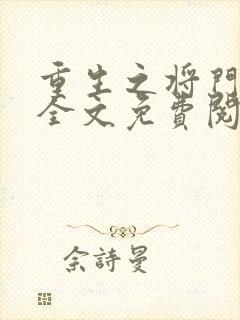 重生之将門
全文免費閱
佘詩曼